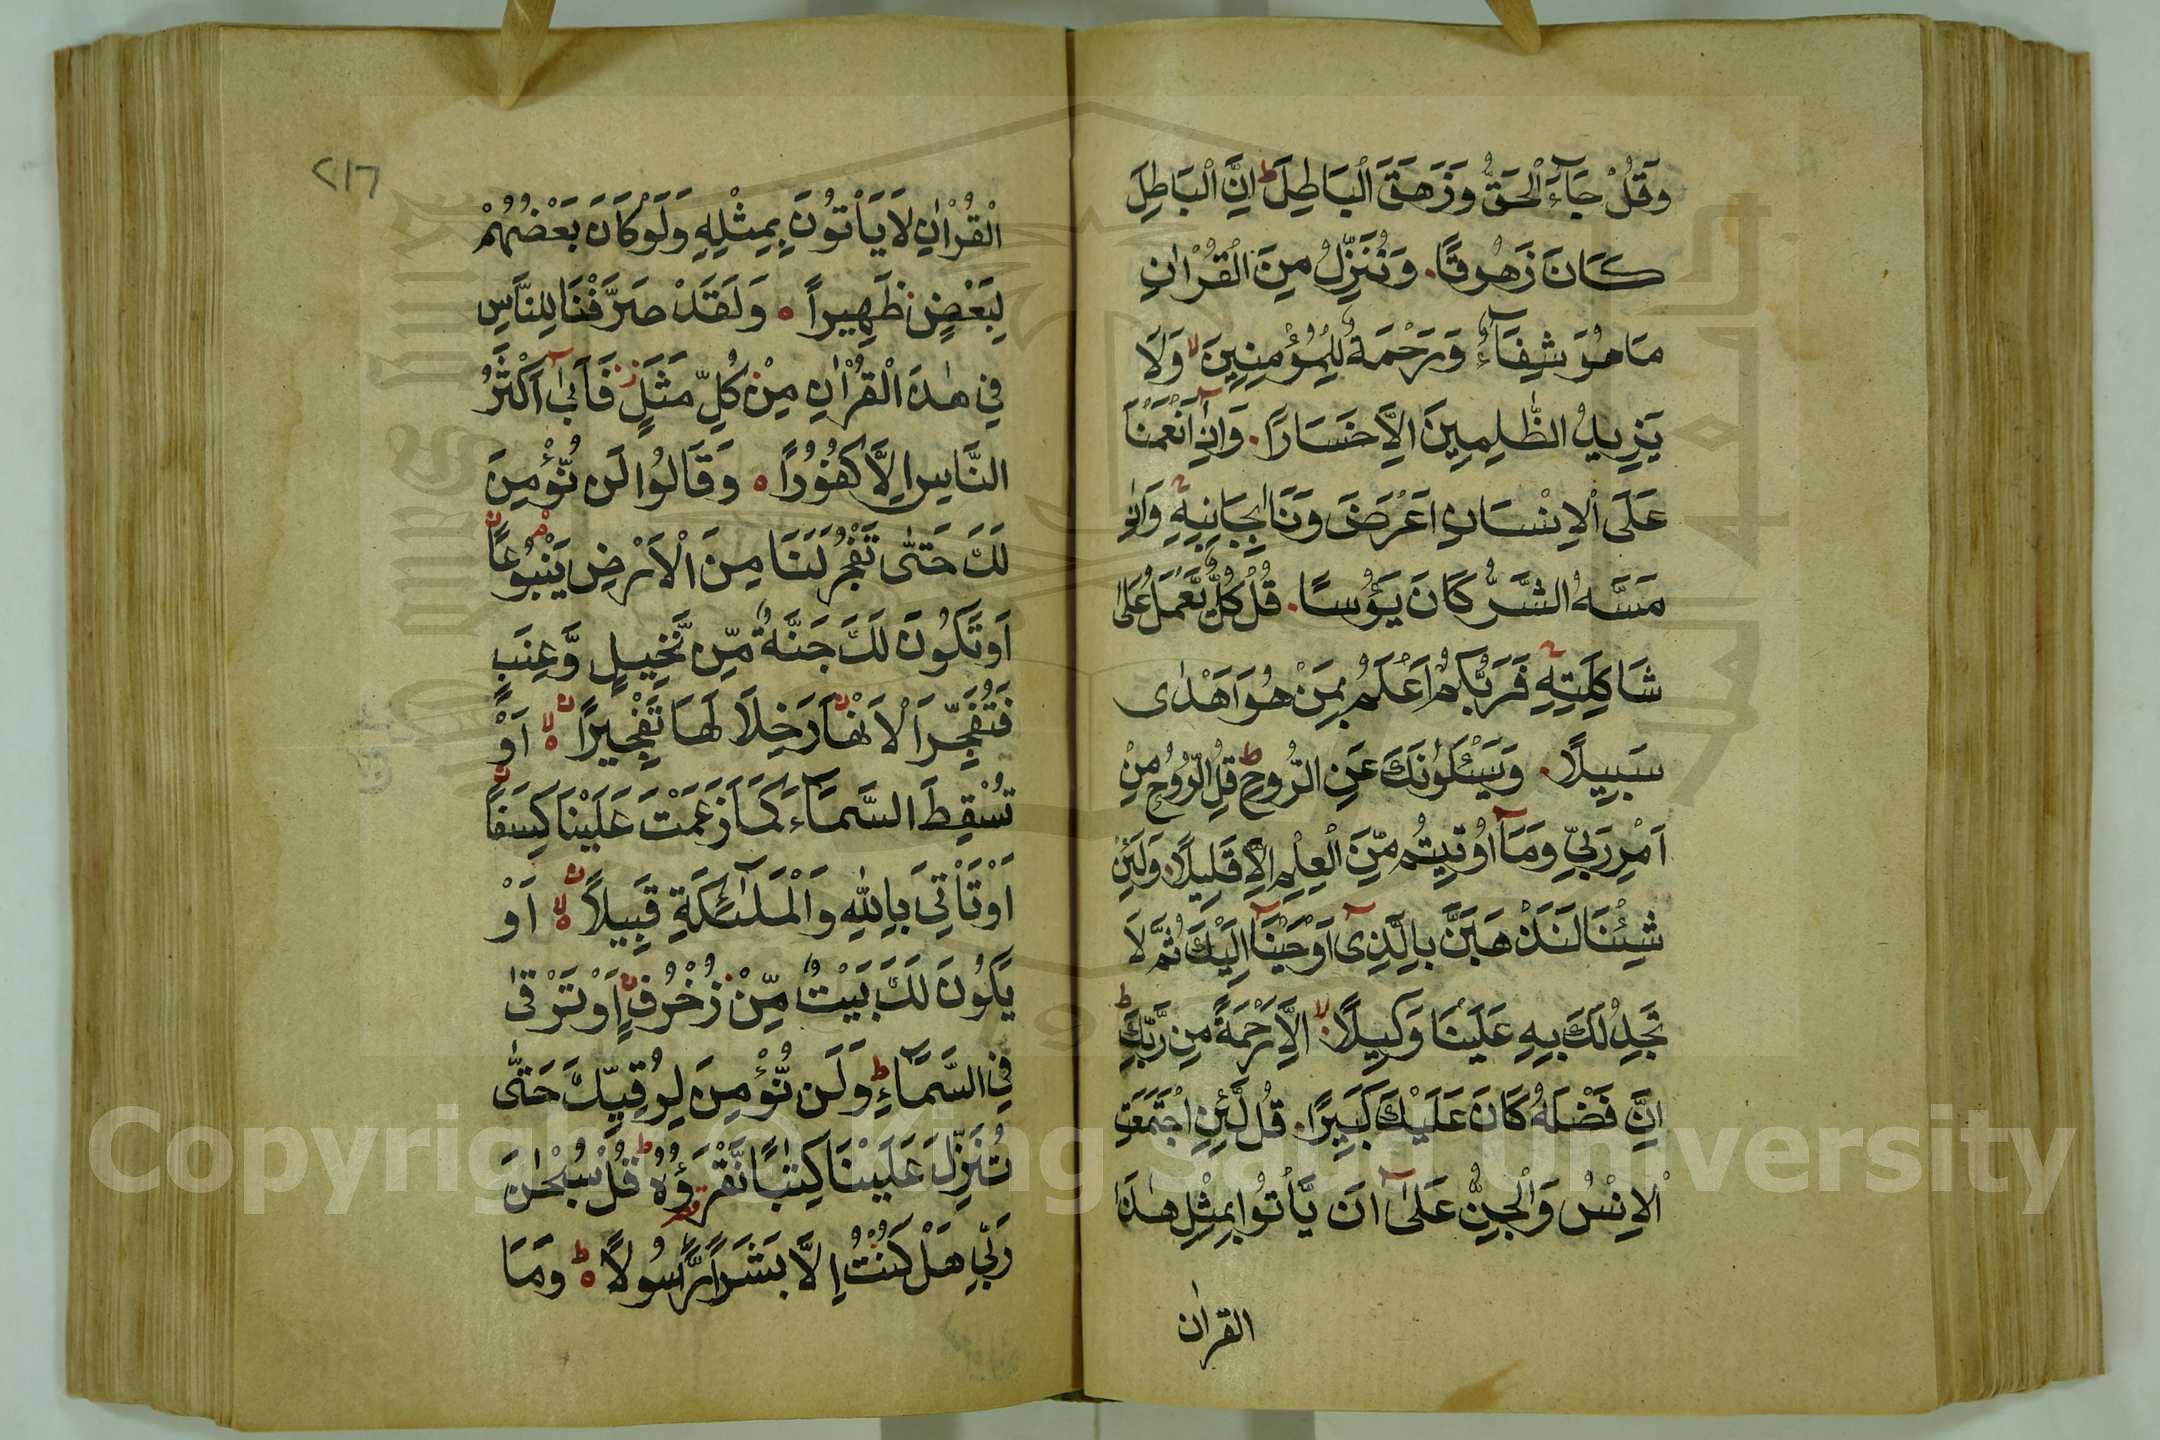 وَقُلْ جَآءَ الْحَقُّ وَزَهَقَ الْبَاطِلُ ط اِنَّ الْبَاطِلَ
كَانَ زَهُوقًا۰ وَنُنَزِّلُ مِنَ الْقُرْاٰنِ
مَا هُوَ شِفَآءٌ وَرَحْمَةٌ لِّلْمُؤْمِنِينَ لا وَلَا
يَزِيدُ الظّٰلِمِينَ اِلَّا خَسَارًا۰ وَاِذَآ اَنْعَمْنَا
عَلَى الْاِنْسَانِ اَعْرَضَ وَنَاٰ بِجَانِبِهٖ وَاِذَا
مَسَّهُ الشَّرُّ كَانَ يَؤُسًا۰ قُلْ كُلٌّ يَّعْمَلُ عَلٰى
شَاكِلَتِهٖ فَرَبُّكُمْ اَعْلَمُ بِمَنْ هُوَ اَهْدٰى
سَبِيلًا۰ وَيَسْـَٔلُونَكَ عَنِ الرُّوحِ ط قُلِ الرُّوحُ مِنْ
اَمْرِ رَبِّي وَمَآ اُوتِيتُم مِّنَ الْعِلْمِ اِلَّا قَلِيلًا۰ وَلَئِنْ
شِئْنَا لَنَذْهَبَنَّ بِالَّذِىٓ اَوْحَيْنَآ اِلَيْكَ ثُمَّ لَا
تَجِدُ لَكَ بِهِ عَلَيْنَا وَكِيلًا۰ لا اِلَّا رَحْمَةً مِن رَّبِّكَ ط
اِنَّ فَضْلَهُ كَانَ عَلَيْكَ كَبِيرًا۰ قُل لَّئِنِ اجْتَمَعَتِ
الْاِنْسُ وَالْجِنُّ عَلٰىٓ اَن يَّأْتُوا بِمِثْلِ هٰذَا
القراٰن
٢١٦
الْقُرْاٰنِ لَا يَأْتُونَ بِمِثْلِهِ وَلَوْ كَانَ بَعْضُهُمْ
لِبَعْضٍ ظَهِيرًا ه وَلَقَدْ صَرَّفْنَا لِلنَّاسِ
فِي هٰذَا الْقُرْاٰنِ مِنْ كُلِّ مَثَلٍ ز فَاَبٰىٓ اَكْثَرُ
النَّاسِ اِلَّا كُفُورًا ه وَقَالُوا لَن نُّؤْمِنَ
لَكَ حَتّٰى تَفْجُرَ لَنَا مِنَ الْاَرْضِ يَنْبُوعًا
اَوْ تَكُونَ لَكَ جَنَّةٌ مِّن نَّخِيلٍ وَّعِنَبٍ
فَتُفَجِّرَ الْاَنْهَارَ خِلَالَهَا تَفْجِيرًا لا اَوْ
تُسْقِطَ السَّمَآءَ كَمَا زَعَمْتَ عَلَيْنَا كِسَفًا
اَوْ تَأْتِيَ بِاللّٰهِ وَالْمَلٰٓئِكَةِ قَبِيلًا لا اَوْ
يَكُونَ لَكَ بَيْتٌ مِّنْ زُخْرُفٍ اَوْ تَرْقٰى
فِي السَّمَآءِ ط وَلَن نُّؤْمِنَ لِرُقِيِّكَ حَتّٰى
تُنَزِّلَ عَلَيْنَا كِتٰبًا نَّقْرَؤُهُ ط قُلْ سُبْحٰنَ
رَبِّي هَلْ كُنْتُ اِلَّا بَشَرًا رَّسُولًا ه ط وَمَا
Copyright © King Saud University